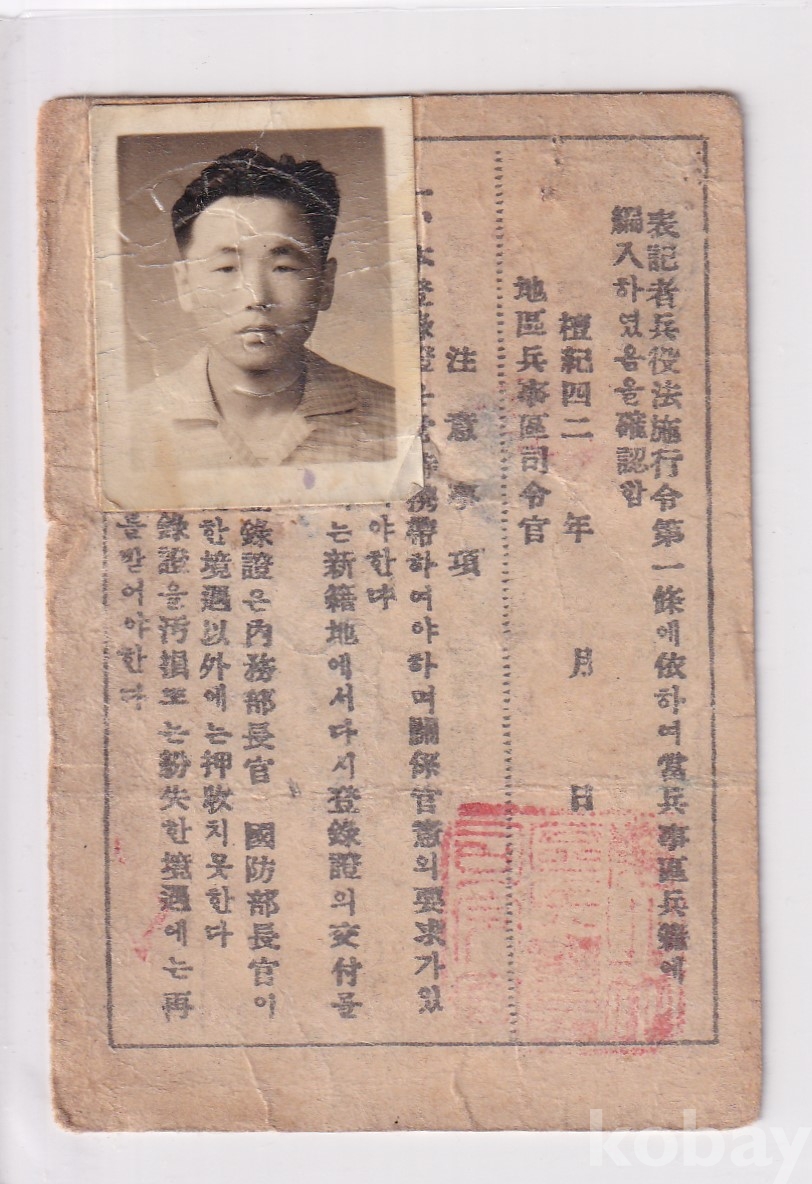 表記者兵役法施行令第一條에依하여當兵事區兵籍에
編入하였음을確認함
檀紀四二 年 月 日
地區兵事區司令官
注意事項
一、本登錄證은常時携帶하여야하며關係官憲의要求가있
야한다
는新籍地에서다시登錄證의交付를
登錄證은內務部長官 國防部長官이
한境遇以外에는押收치못한다
錄證을汚損또는紛失한境遇에는再
를받어야한다
kobay